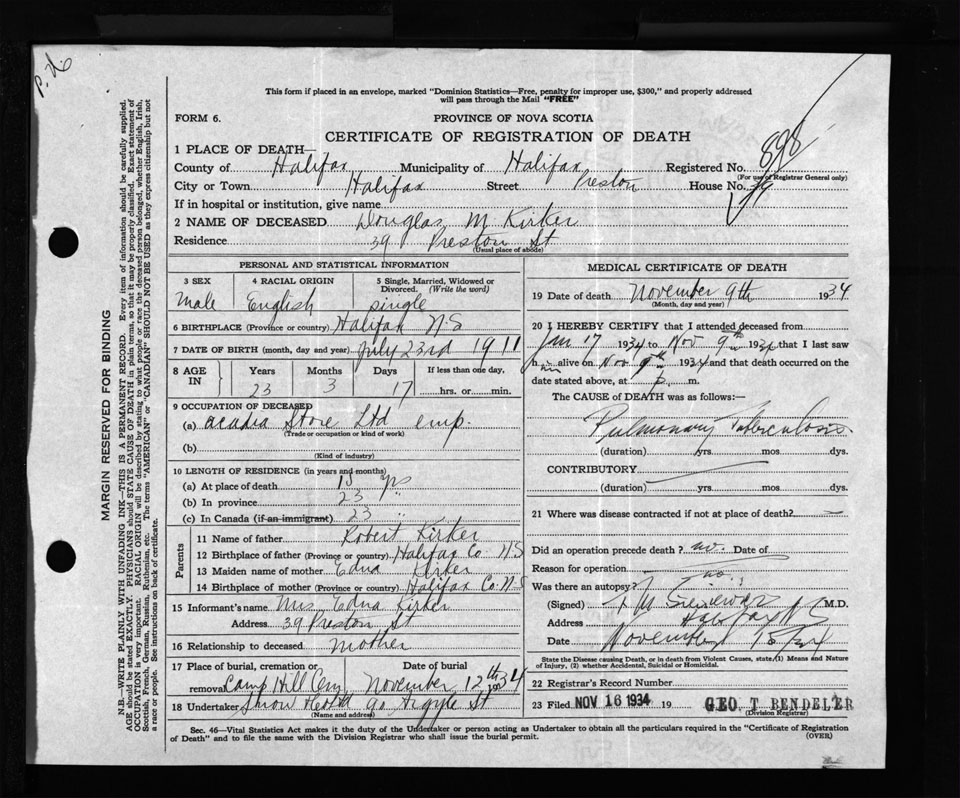 P.d.
This form if placed in an envelope, marked "Dominion Statistics—Free, penalty for improper use, $300," and properly addressed
will pass through the Mail "FREE"
FORM 6.
PROVINCE OF NOVA SCOTIA
CERTIFICATE OF REGISTRATION OF DEATH
898
1 PLACE OF DEATH—
County of Halifax Municipality of Halifax Registered No.
(For use of Registrar General only)
City or Town Halifax Street Preston House No. 39
If in hospital or institution, give name
2 NAME OF DECEASED Douglas M Kirker
Residence 39 Preston St
(Usual place of abode)
PERSONAL AND STATISTICAL INFORMATION
3 SEX 4 RACIAL ORIGIN 5 Single, Married, Widowed or
Divorced. (Write the word)
Male English Single
6 BIRTHPLACE (Province or country) Halifax N.S
7 DATE OF BIRTH (month, day and year) July 23rd 1911
8 AGE IN Years Months Days If less than one day,
23 3 17 hrs. or min.
9 OCCUPATION OF DECEASED
(a) Acadia Store Ltd emp.
(Trade or occupation or kind of work)
(b)
(Kind of industry)
10 LENGTH OF RESIDENCE (in years and months)
(a) At place of death yrs
(b) In province 23 "
(c) In Canada (if an immigrant) 23 "
Parents
11 Name of father Robert Kirker
12 Birthplace of father (Province or country) Halifax Co N.S
13 Maiden name of mother Edna Kirker
14 Birthplace of mother (Province or country) Halifax Co. N.S
15 Informant's name Mrs Edna Kirker
Address 39 Preston St
16 Relationship to deceased mother
17 Place of burial, cremation or Date of burial
removal Camp Hill Cem, November 12th 1934
18 Undertaker Snow 90 Argyle St
(Name and address)
MEDICAL CERTIFICATE OF DEATH
19 Date of death November 9th 1934
(Month, day and year)
20 I HEREBY CERTIFY that I attended deceased from
Jan 17 1934 to Nov 9th 1934 that I last saw
him alive on Nov 9th 1934 and that death occurred on the
date stated above, at p. m.
The CAUSE OF DEATH was as follows:—
Pulmonary Tuberculosis
(duration) yrs. mos. dys.
CONTRIBUTORY
(duration) yrs. mos. dys.
21 Where was disease contracted if not at place of death?
Did an operation precede death? no. Date of
Reason for operation
Was there an autopsy? no.
(Signed) M.D.
Address Halifax N.S
Date November 15/34
State the Disease causing Death, or in death from Violent Causes, state, (1) Means and Nature
of Injury, (2) whether Accidental, Suicidal or Homicidal.
22 Registrar's Record No.
23 Filed NOV 16 1934 19 GEO. T BENDELER
(Division Registrar)
Sec. 46—Vital Statistics Act makes it the duty of the Undertaker or person acting as Undertaker to obtain all the particulars required in the "Certificate of Registration
of Death" and to file the same with the Division Registrar who shall issue the burial permit.
(OVER)
MARGIN RESERVED FOR BINDING
N.B.—WRITE PLAINLY WITH UNFADING INK—THIS IS A PERMANENT RECORD. Every item of information should be carefully supplied.
AGE should be stated EXACTLY. PHYSICIANS should STATE CAUSE OF DEATH in plain terms, so that it may be properly classified. Exact statement of
OCCUPATION is very important. RACIAL ORIGIN will be described by stating to what people or race the deceased person belonged, whether English, Irish,
Scottish, French, German, Russian, Ruthenian, etc. The terms "AMERICAN" or "CANADIAN" SHOULD NOT BE USED as they express citizenship but not
a race or people. See instructions on back of certificate.